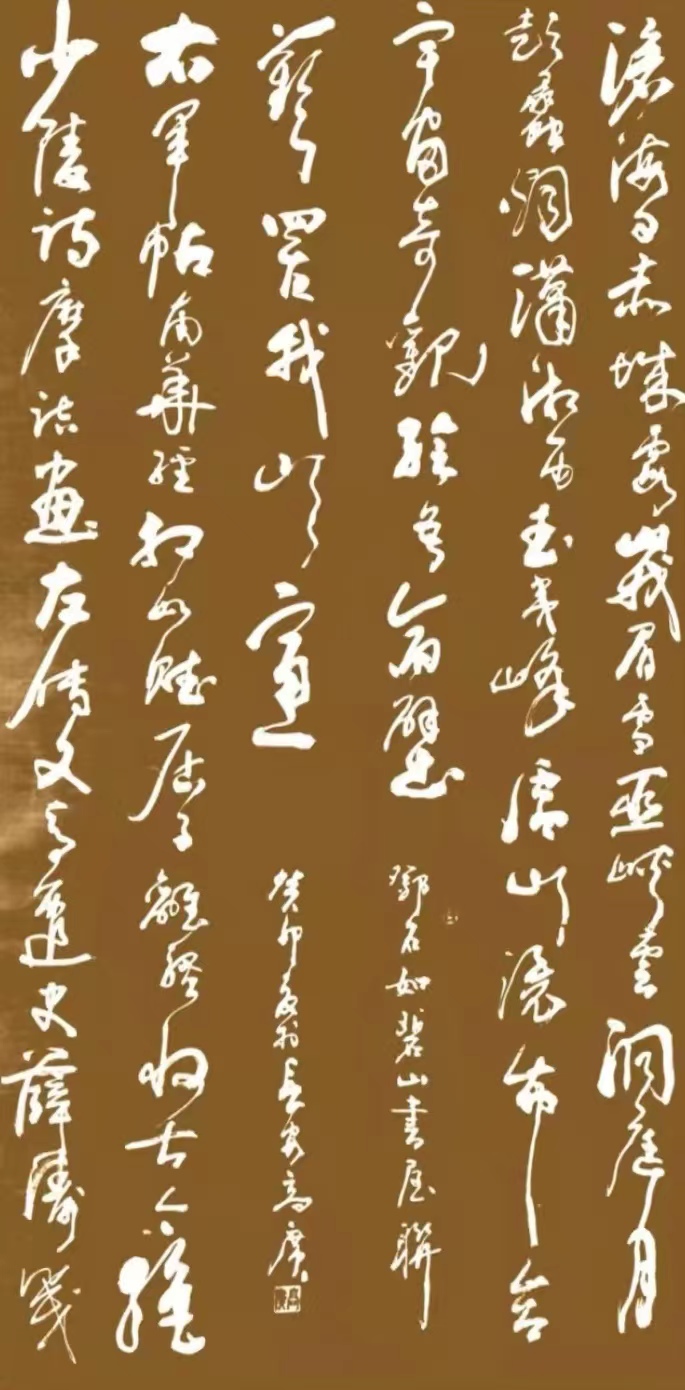 滄海日赤城霞峨眉雪巫峽雲洞庭月
彭蠡烟瀟湘雨武夷峰廬山瀑布合
宇宙奇觀繪吾齋壁
鄧石如碧山書屋聯
少陵詩摩詰畫左傳文馬遷史薛濤箋
右軍帖南華經相如賦屈子離騷收古今絕
藝置我山窗
癸卯夏於長安高